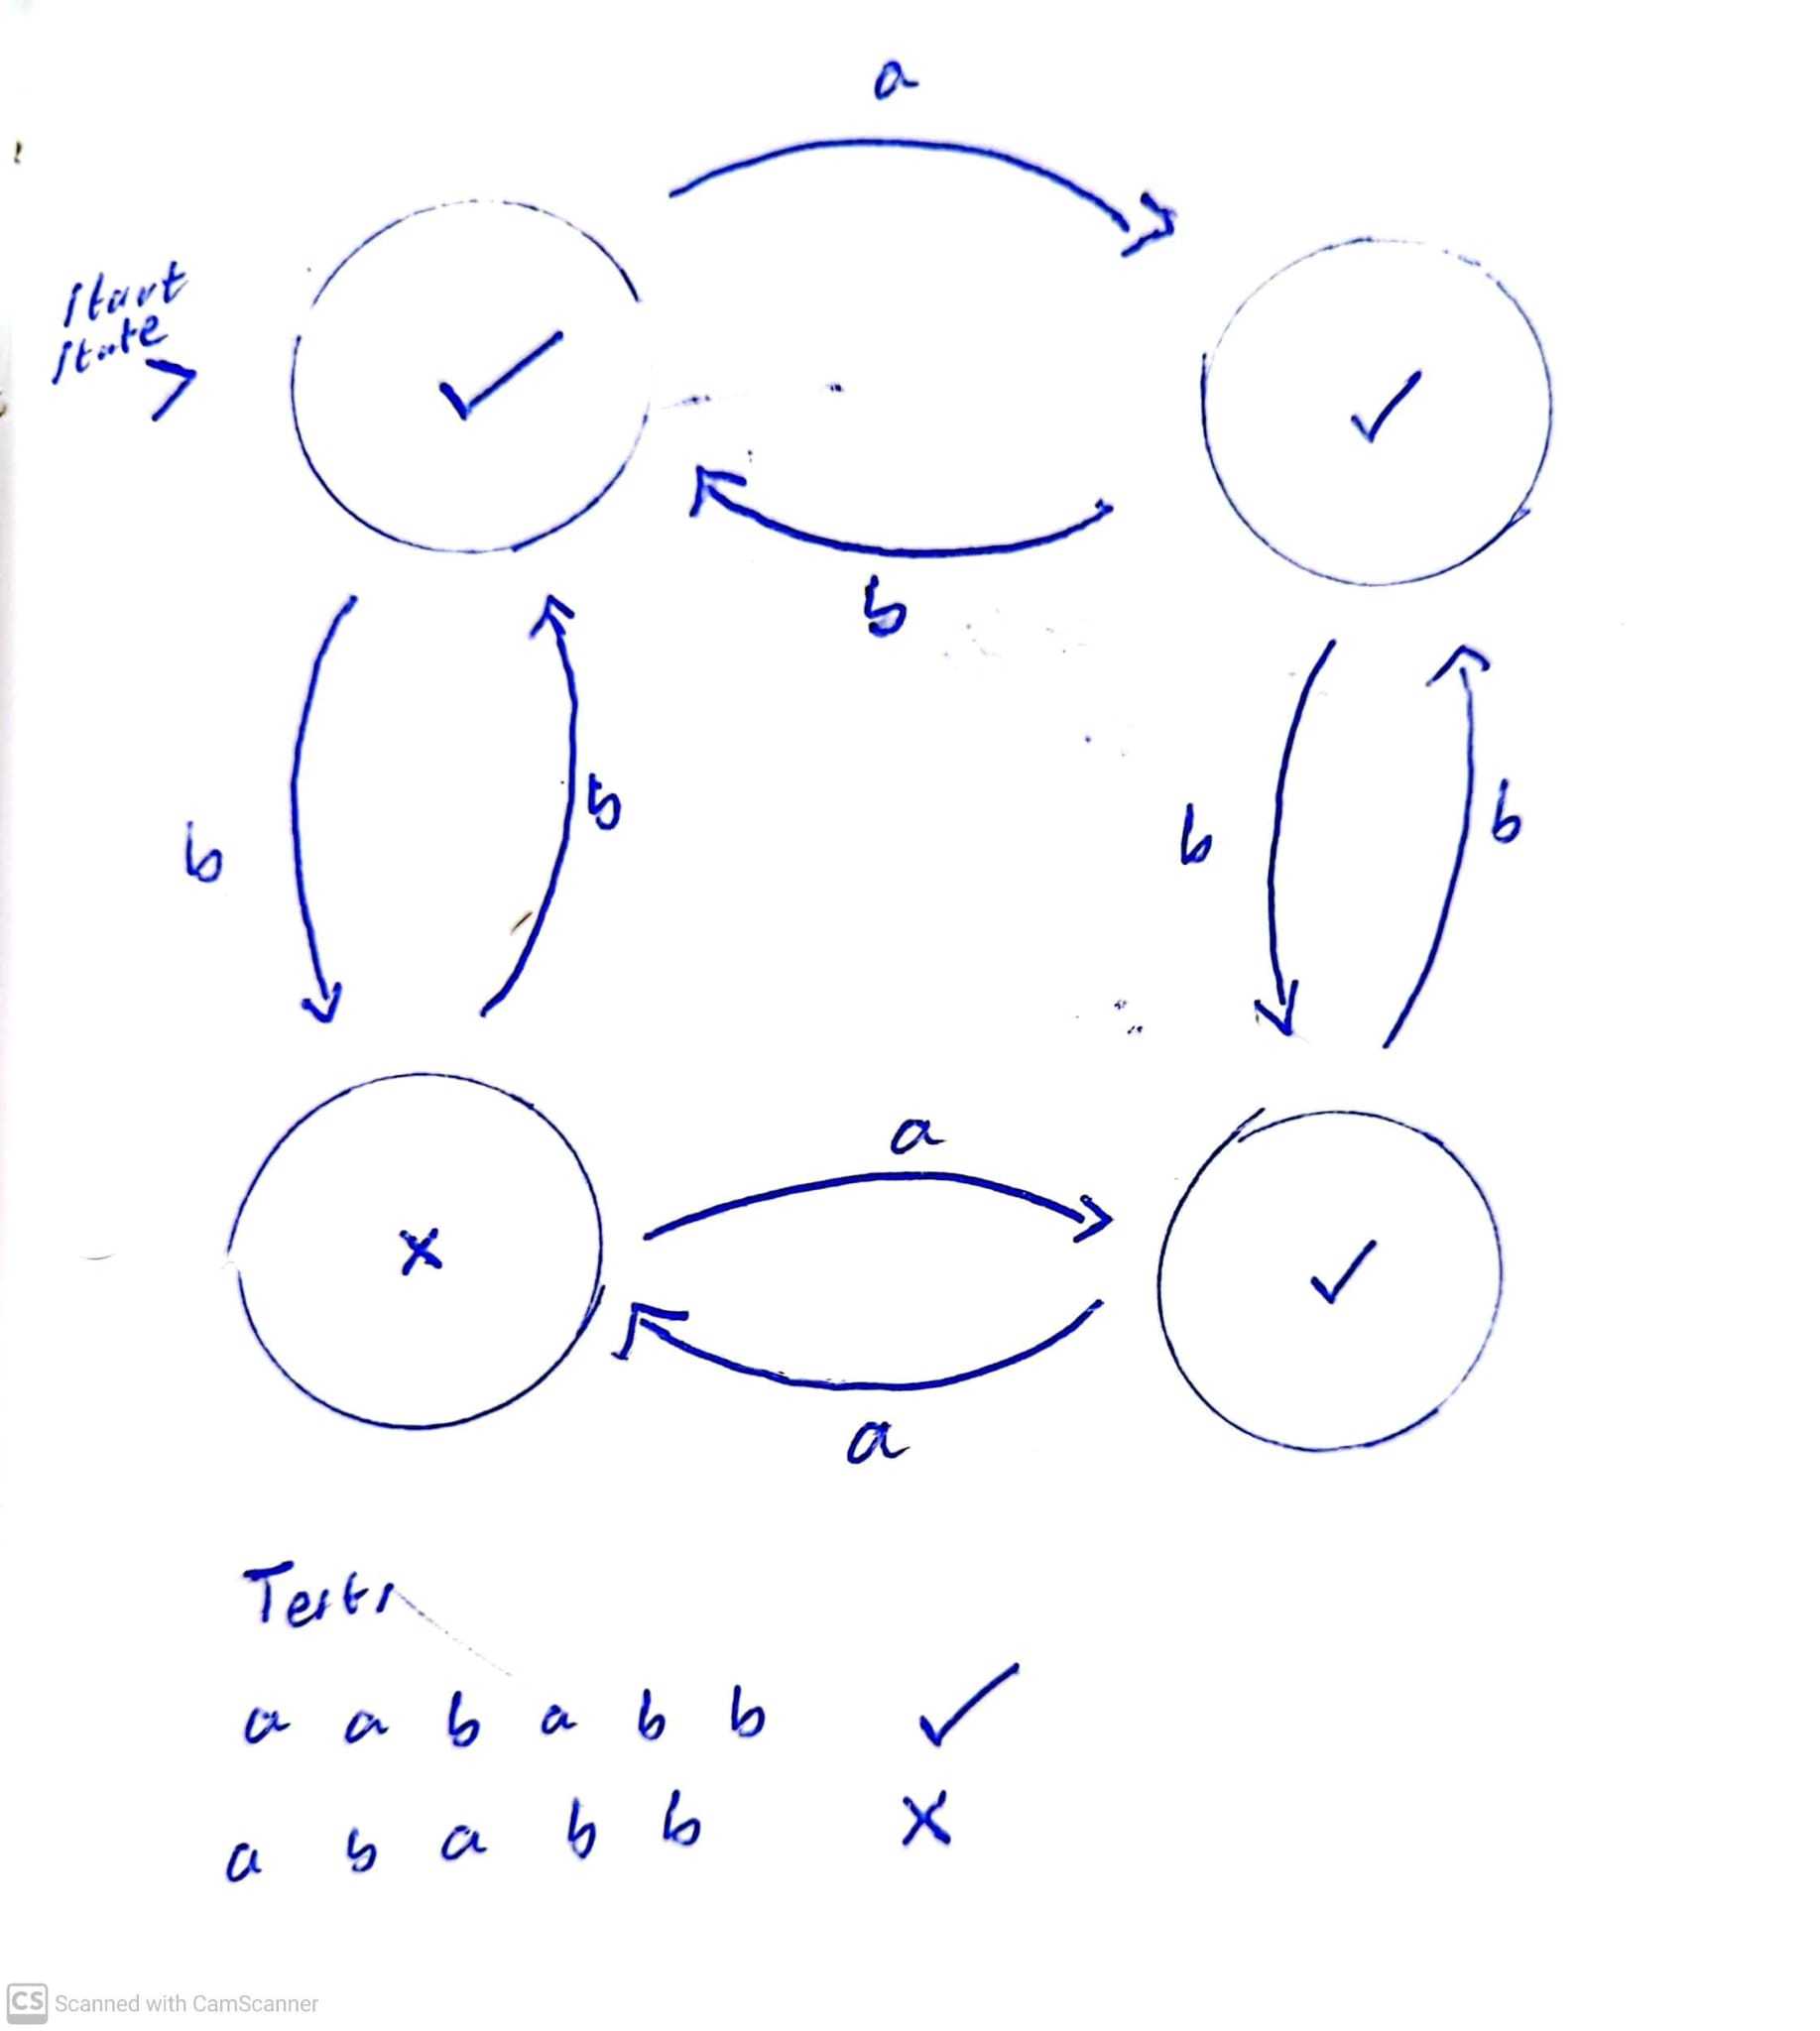 a
start
state
b
b
b
b
b
a
a
Tests
a a b a b b ✓
a b a b b x
CS Scanned with CamScanner